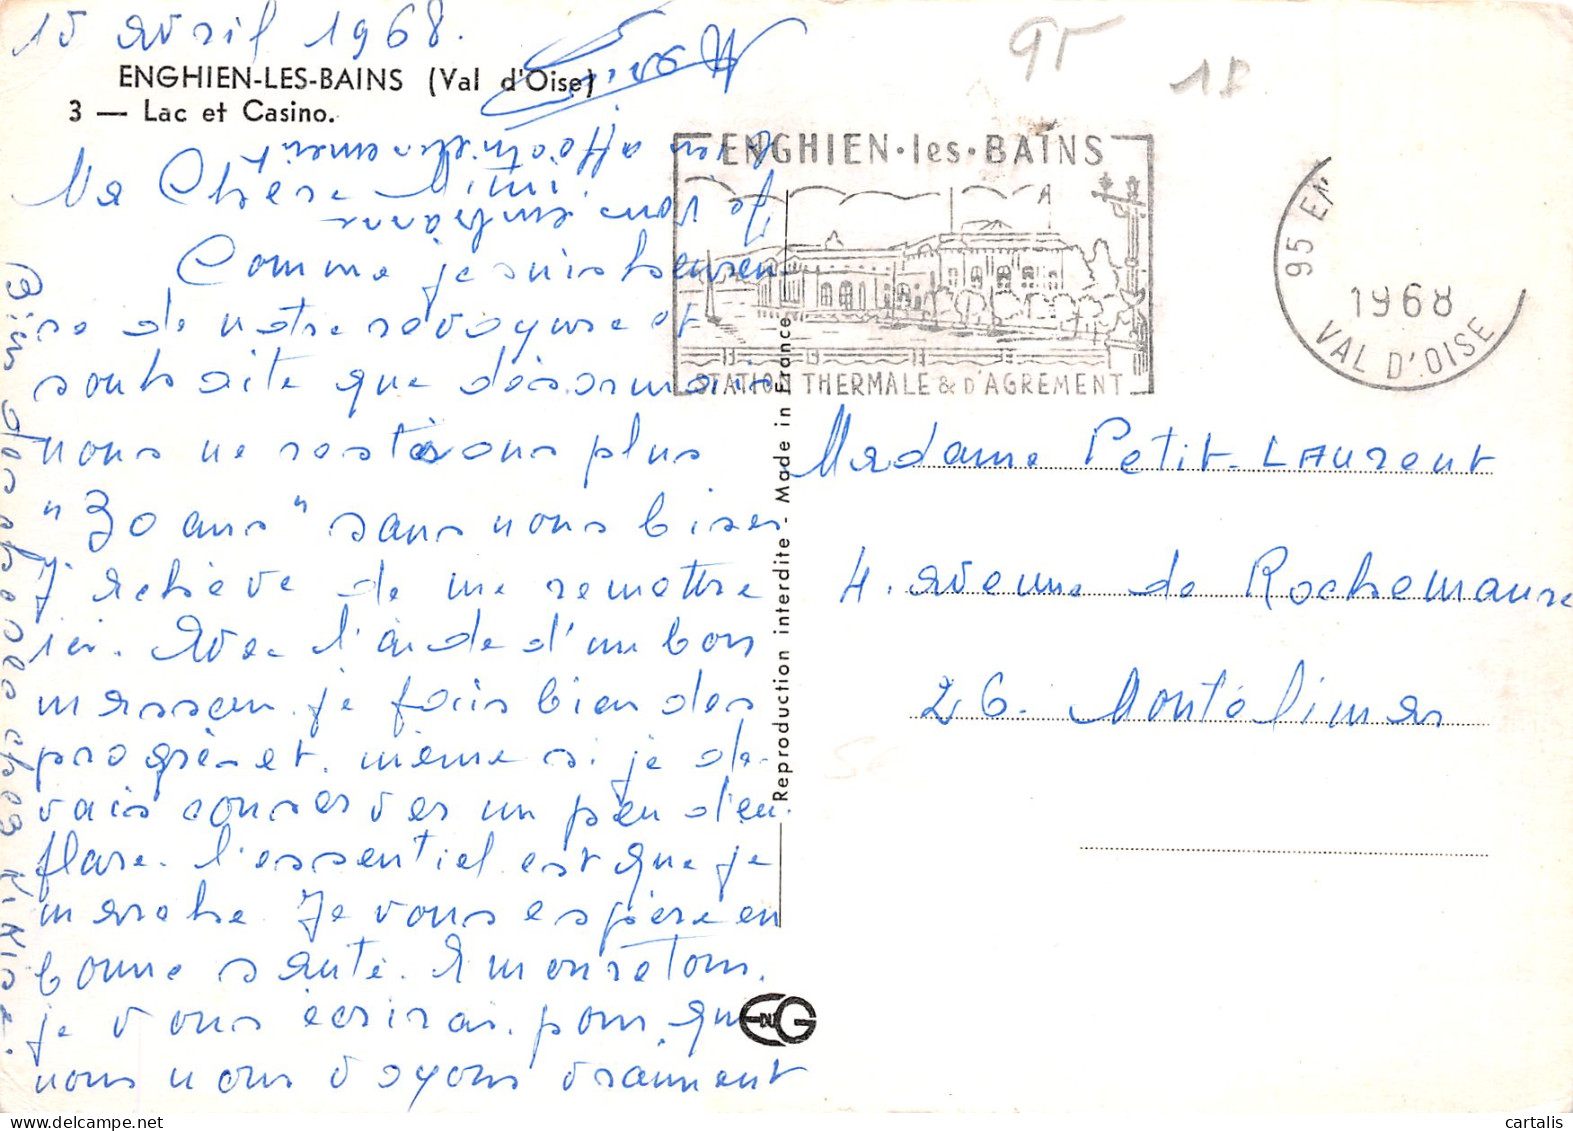 15 avril 1968.
ENGHIEN-LES-BAINS (Val d'Oise)
3 — Lac et Casino.
Ma Chère Mimi.
Comme je suis heureu-
se de notre revoyure et
souhaite que désormais
nous ne restions plus
"30 ans" sans nous biser
J'achève de me remettre
ici. Avec l'aide d'un bon
masseur. je fais bien des
progrès et. même si je de-
vais conserver un peu d'en-
flure. l'essentiel est que je
marche. Je vous espère en
bonne santé. A mon retour.
je vous écrirai. pour que
nous nous voyons vraiment
Bien des choses chez Kikise.
Je vous embrasse
bien affectueusement
95
18
ENGHIEN·les·BAINS
STATION THERMALE & D'AGREMENT
95 EN
1968
VAL D'OISE
Madame Petit-Laurent
4. avenue de Rochemaure
26. Montélimar
Reproduction interdite - Made in France